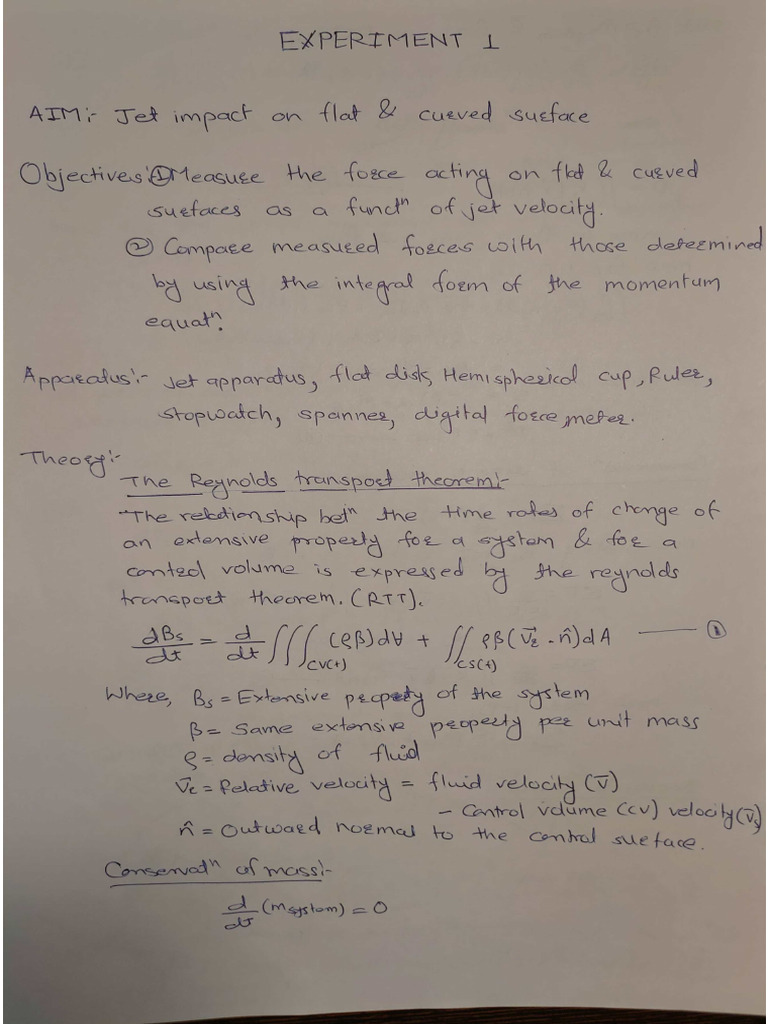 EXPERIMENT 1
AIM:- Jet impact on flat & curved surface
Objectives:- ① Measure the force acting on flat & curved
surfaces as a functⁿ of jet velocity.
② Compare measured forces with those determined
by using the integral form of the momentum
equatⁿ.
Apparatus:- Jet apparatus, flat disk, Hemispherical cup, Ruler,
stopwatch, spanner, digital force meter.
Theory:-
The Reynolds transport theorem:-
"The relationship betⁿ the time rates of change of
an extensive property for a system & for a
control volume is expressed by the reynolds
transport theorem. (RTT).
dBs/dt = d/dt ∭CV(t) (ρβ)dV + ∬CS(t) ρβ(V⃗r · n̂)dA —— ①
Where, Bs = Extensive property of the system
β = Same extensive property per unit mass
ρ = density of fluid
V⃗r = Relative velocity = fluid velocity (V⃗)
- Control volume (CV) velocity (V⃗s)
n̂ = Outward normal to the control surface.
Conservatⁿ of mass:-
d/dt (msystem) = 0